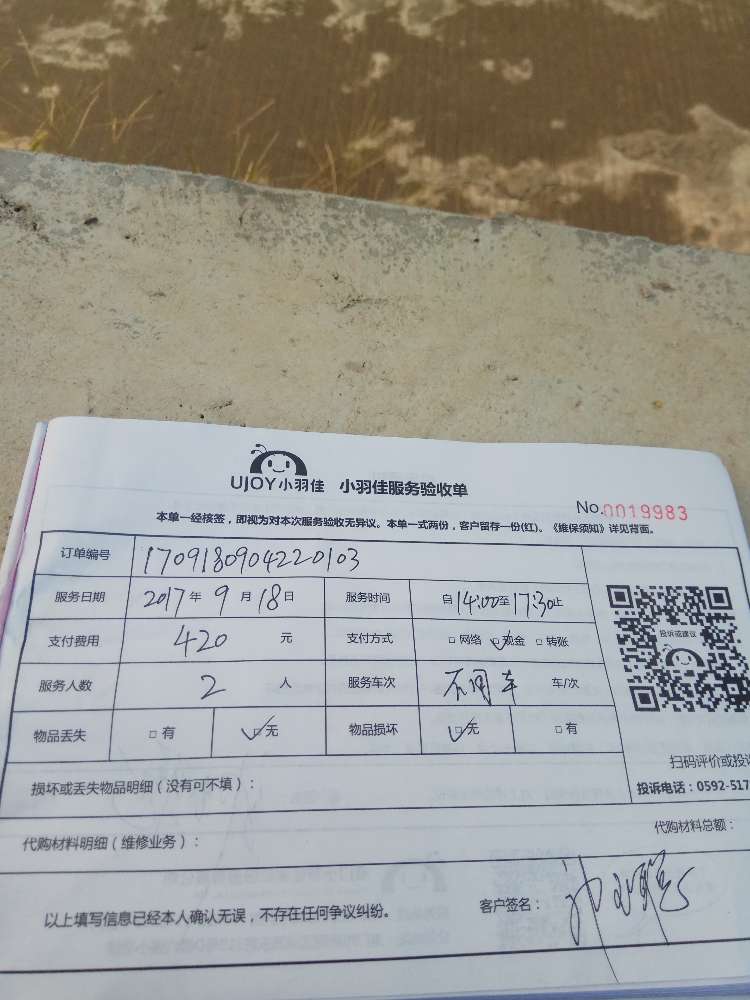 UJOY小羽佳 小羽佳服务验收单
No.0019983
本单一经核签，即视为对本次服务验收无异议。本单一式两份，客户留存一份(红)。《维保须知》详见背面。
订单编号 1709180904220103
服务日期 2017年9月18日 服务时间 自14:00至17:30止
支付费用 420元 支付方式 □网络 ☑现金 □转账
服务人数 2人 服务车次 不用车 车/次
物品丢失 □有 ☑无 物品损坏 ☑无 □有
投诉或建议
扫码评价或投诉
投诉电话：0592-517
损坏或丢失物品明细（没有可不填）：
代购材料明细（维修业务）：
代购材料总额：
以上填写信息已经本人确认无误，不存在任何争议纠纷。
客户签名：